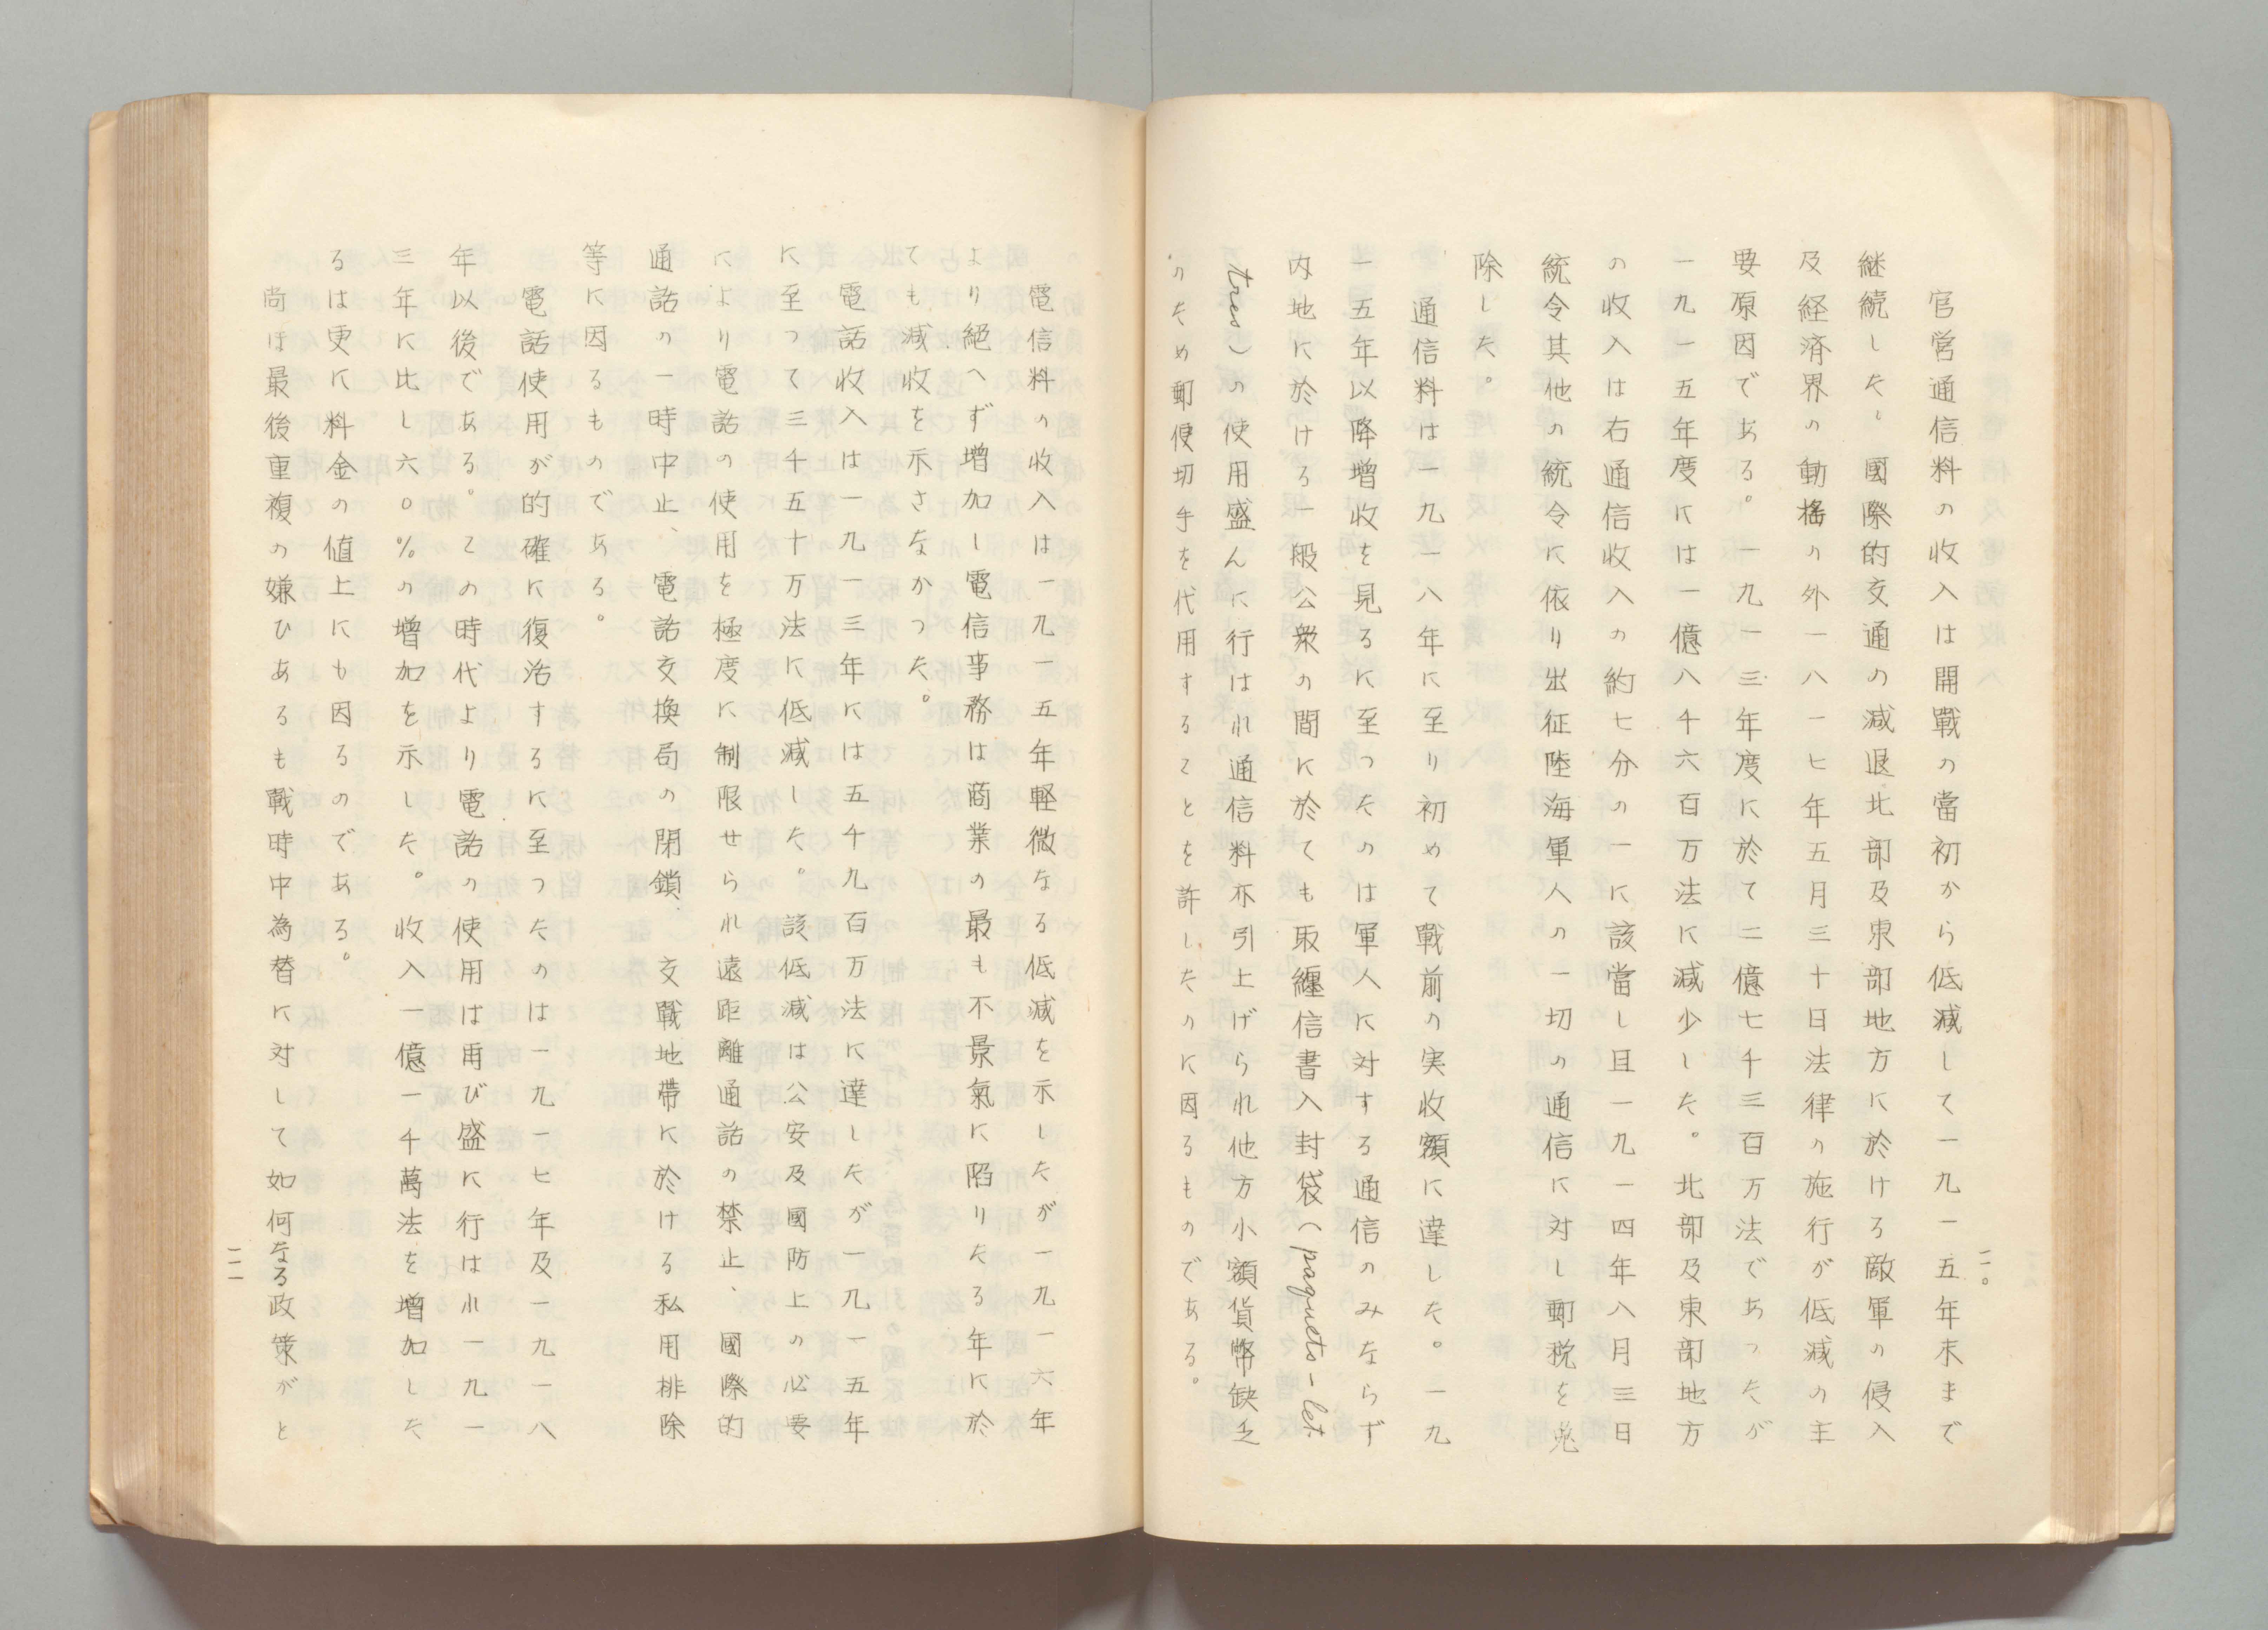 官営通信料の收入は開戰の當初から低減して一九一五年末まで
継続した、國際的交通の減退、北部及東部地方に於ける敵軍の侵入
及経済界の動搖の外一八一七年五月三十日法律の施行が低減の主
要原因である。一九一三年度に於て二億七千三百万法であったが
一九一五年度には一億八千六百万法に減少した。北部及東部地方
の收入は右通信收入の約七分の一に該當し且一九一四年八月三日
統令其他の統令に依り出征陸海軍人の一切の通信に対し郵税を免
除した。
通信料は一九一八年に至り初めて戰前の実收額に達した。一九
一五年以降增收を見るに至つたのは軍人に対する通信のみならず
内地に於ける一般公衆の間に於ても取纏信書入封袋（paquets-let
tres）の使用盛んに行はれ通信料亦引上げられ他方小額貨幣缺乏
のため郵便切手を代用することを許したのに因るものである。
二一〇
電信料の收入は一九一五年軽微なる低減を示したが一九一六年
より絕へず增加し電信事務は商業の最も不景氣に陷りたる年に於
ても減收を示さなかつた。
電話收入は一九一三年には五千九百万法に達したが一九一五年
に至つて三千五十万法に低減した。該低減は公安及國防上の必要
により電話の使用を極度に制限せられ遠距離通話の禁止、國際的
通話の一時中止、電話交換局の閉鎖、交戰地帶に於ける私用排除
等に因るものである。
電話使用が的確に復活するに至つたのは一九一七年及一九一八
年以後である。この時代より電話の使用は再び盛に行はれ一九一
三年に比し六〇％の增加を示した。收入一億一千萬法を增加した
るは更に料金の値上にも因るのである。
尚ほ最後重複の嫌ひあるも戰時中為替に対して如何なる政策がと
二一一